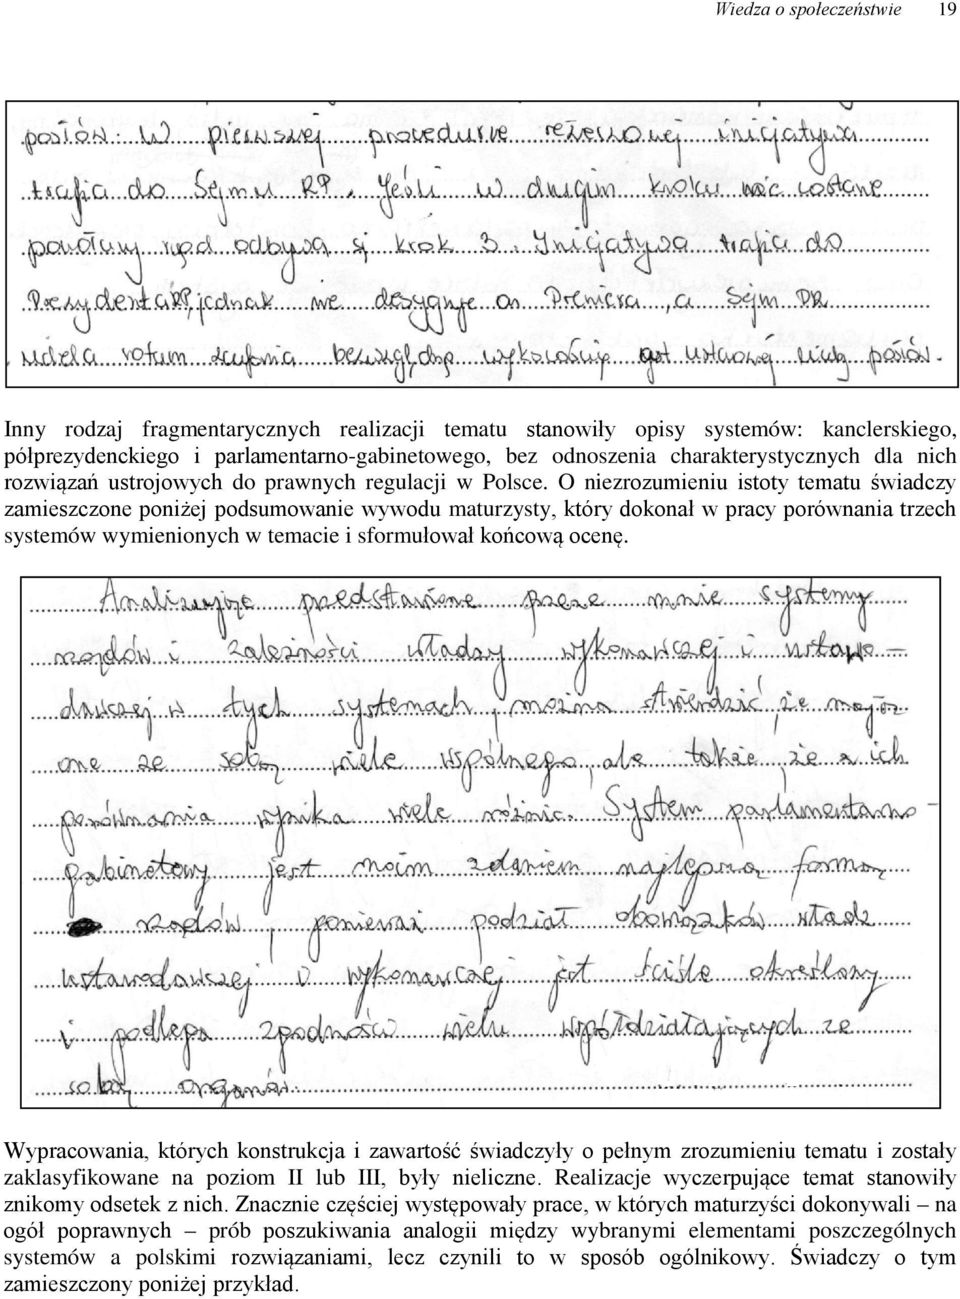 Wiedza o społeczeństwie 19
posłów. W pierwszej procedurze rezerwowej inicjatywa
trafia do Sejmu RP. Jeśli w drugim kroku nie zostanie
powołany rząd odbywa się krok 3. Inicjatywa trafia do
Prezydenta RP, jednak nie desygnuje on Premiera, a Sejm
udziela votum zaufania bezwzględną większością ust. posłów.
Inny rodzaj fragmentarycznych realizacji tematu stanowiły opisy systemów: kanclerskiego,
półprezydenckiego i parlamentarno-gabinetowego, bez odnoszenia charakterystycznych dla nich
rozwiązań ustrojowych do prawnych regulacji w Polsce. O niezrozumieniu istoty tematu świadczy
zamieszczone poniżej podsumowanie wywodu maturzysty, który dokonał w pracy porównania trzech
systemów wymienionych w temacie i sformułował końcową ocenę.
Analizując przedstawione przeze mnie systemy
rządów i zależności władzy wykonawczej i ustawo-
dawczej w tych systemach, można stwierdzić, że mają
one ze sobą wiele wspólnego, ale także, że z ich
porównania wynika wiele różnic. System parlamentarno-
gabinetowy jest moim zdaniem najlepszą formą
rządów, ponieważ podział obowiązków władz
ustawodawczej i wykonawczej jest ściśle określony
i podlega zgodności wielu współdziałających ze
sobą organów.
Wypracowania, których konstrukcja i zawartość świadczyły o pełnym zrozumieniu tematu i zostały
zaklasyfikowane na poziom II lub III, były nieliczne. Realizacje wyczerpujące temat stanowiły
znikomy odsetek z nich. Znacznie częściej występowały prace, w których maturzyści dokonywali – na
ogół poprawnych – prób poszukiwania analogii między wybranymi elementami poszczególnych
systemów a polskimi rozwiązaniami, lecz czynili to w sposób ogólnikowy. Świadczy o tym
zamieszczony poniżej przykład.